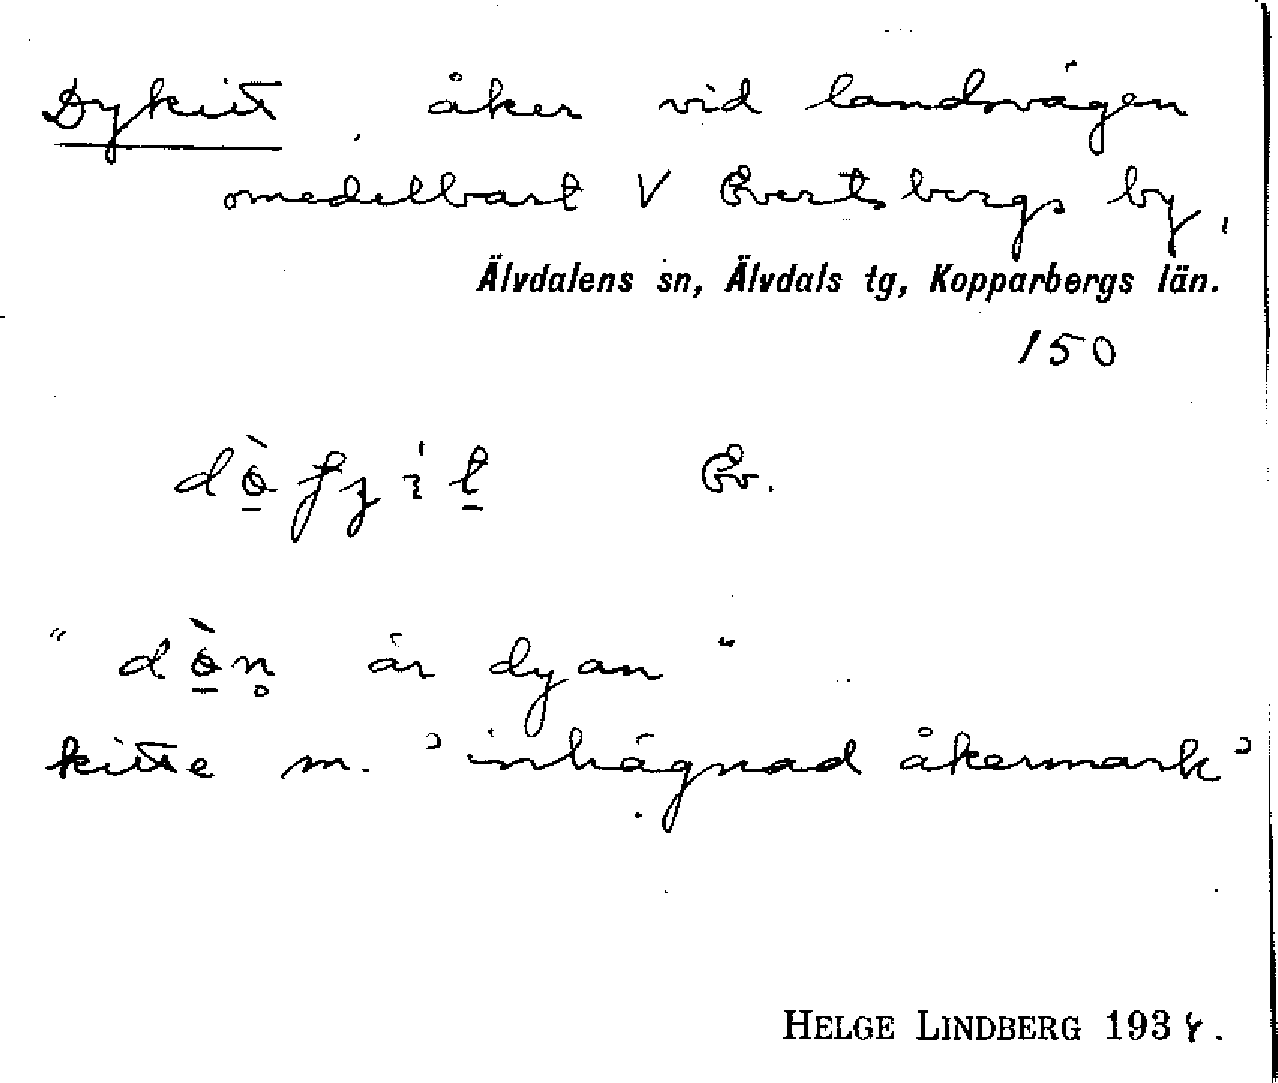 Dykitt, åker vid landsvägen
omedelbart V Evertsbergs by,
Älvdalens sn, Älvdals tg, Kopparbergs län.
150
Ev.
" är dyan "
kitte m. 'inhägnad åkermark'
HELGE LINDBERG 1934.